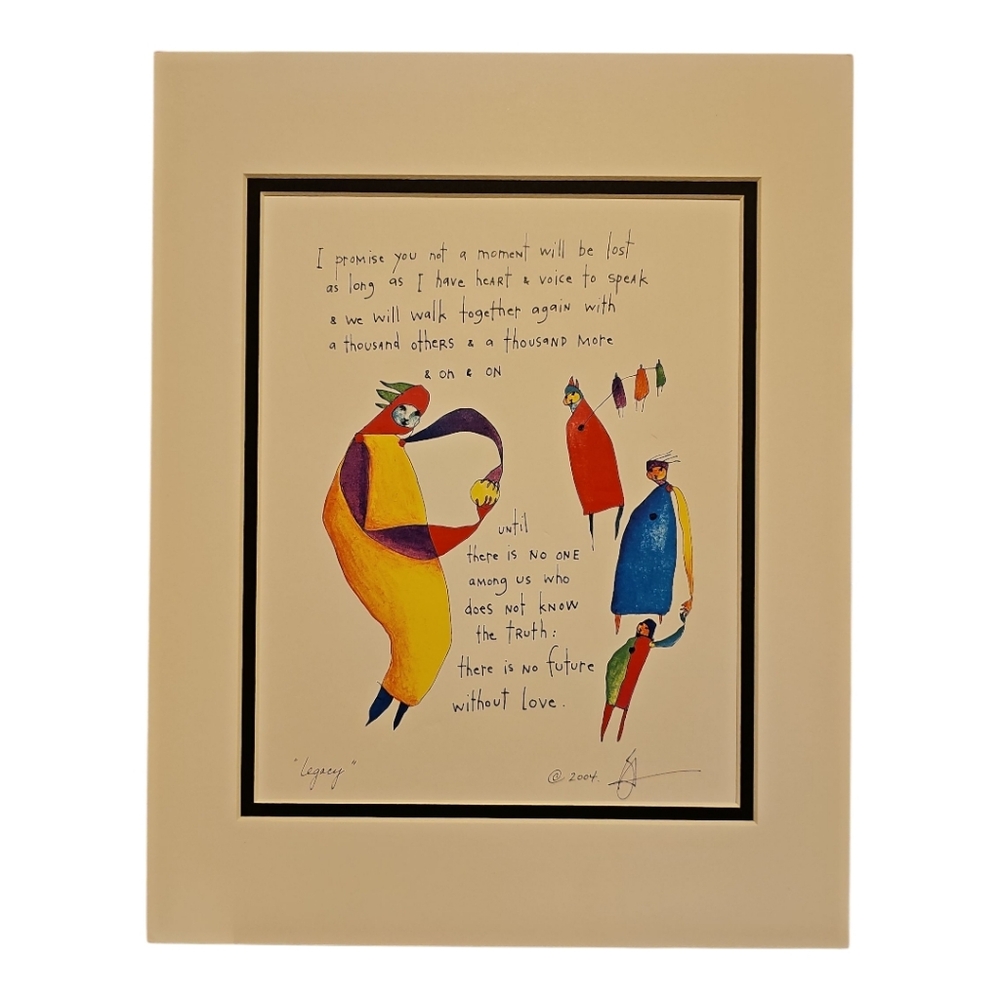 I promise you not a moment will be lost
as long as I have heart & voice to speak
& we will walk together again with
a thousand others & a thousand more
& on & on
until
there is no one
among us who
does not know
the truth:
there is no future
without love.
"Legacy"
© 2004.